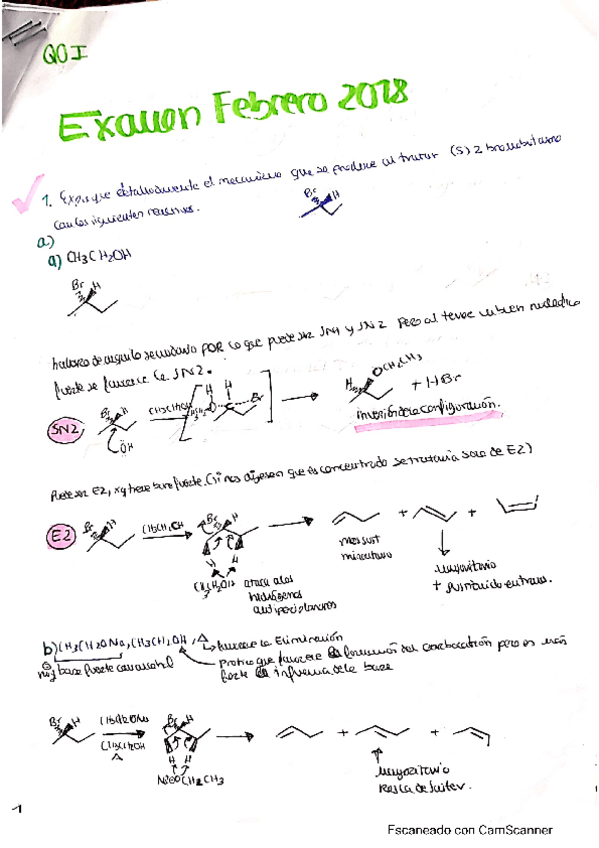 QOI
Examen Febrero 2018
1. Explique detalladamente el mecanismo que se produce al tratar (S) 2 bromobutano
con los siguientes reactivos.
Br H
a)
a) CH3CH2OH
Br H
haluro de alquilo secundario POR lo que puede ser SN1 y SN2 Pero al tener un buen nucleófilo
fuerte se favorece la SN2.
SN2
Br H
CH3CH2OH
H
Br
OCH2CH3
H
+ HBr
OH
inversión de la configuración.
Puede ser E2, xq tiene base fuerte. (Si nos dijesen que es concentrado se trataría solo de E2)
E2
Br H
Br H
+
+
H H
CH3CH2OH
ataca a los
hidrógenos
antiperiplanares
menos sust
minoritario
Mayoritario
+ sustituido en trans.
b) CH3CH2ONa, CH3CH2OH, Δ → favorece la Eliminación
base fuerte con alcohol
protico que favorece la formación del carbocatión pero es más
fuerte la influencia de la base
Br H
CH3CH2ONa
CH3CH2OH
Δ
Br H
H H
+
+
Mayoritario
Regla de Saitzev.
1
Escaneado con CamScanner